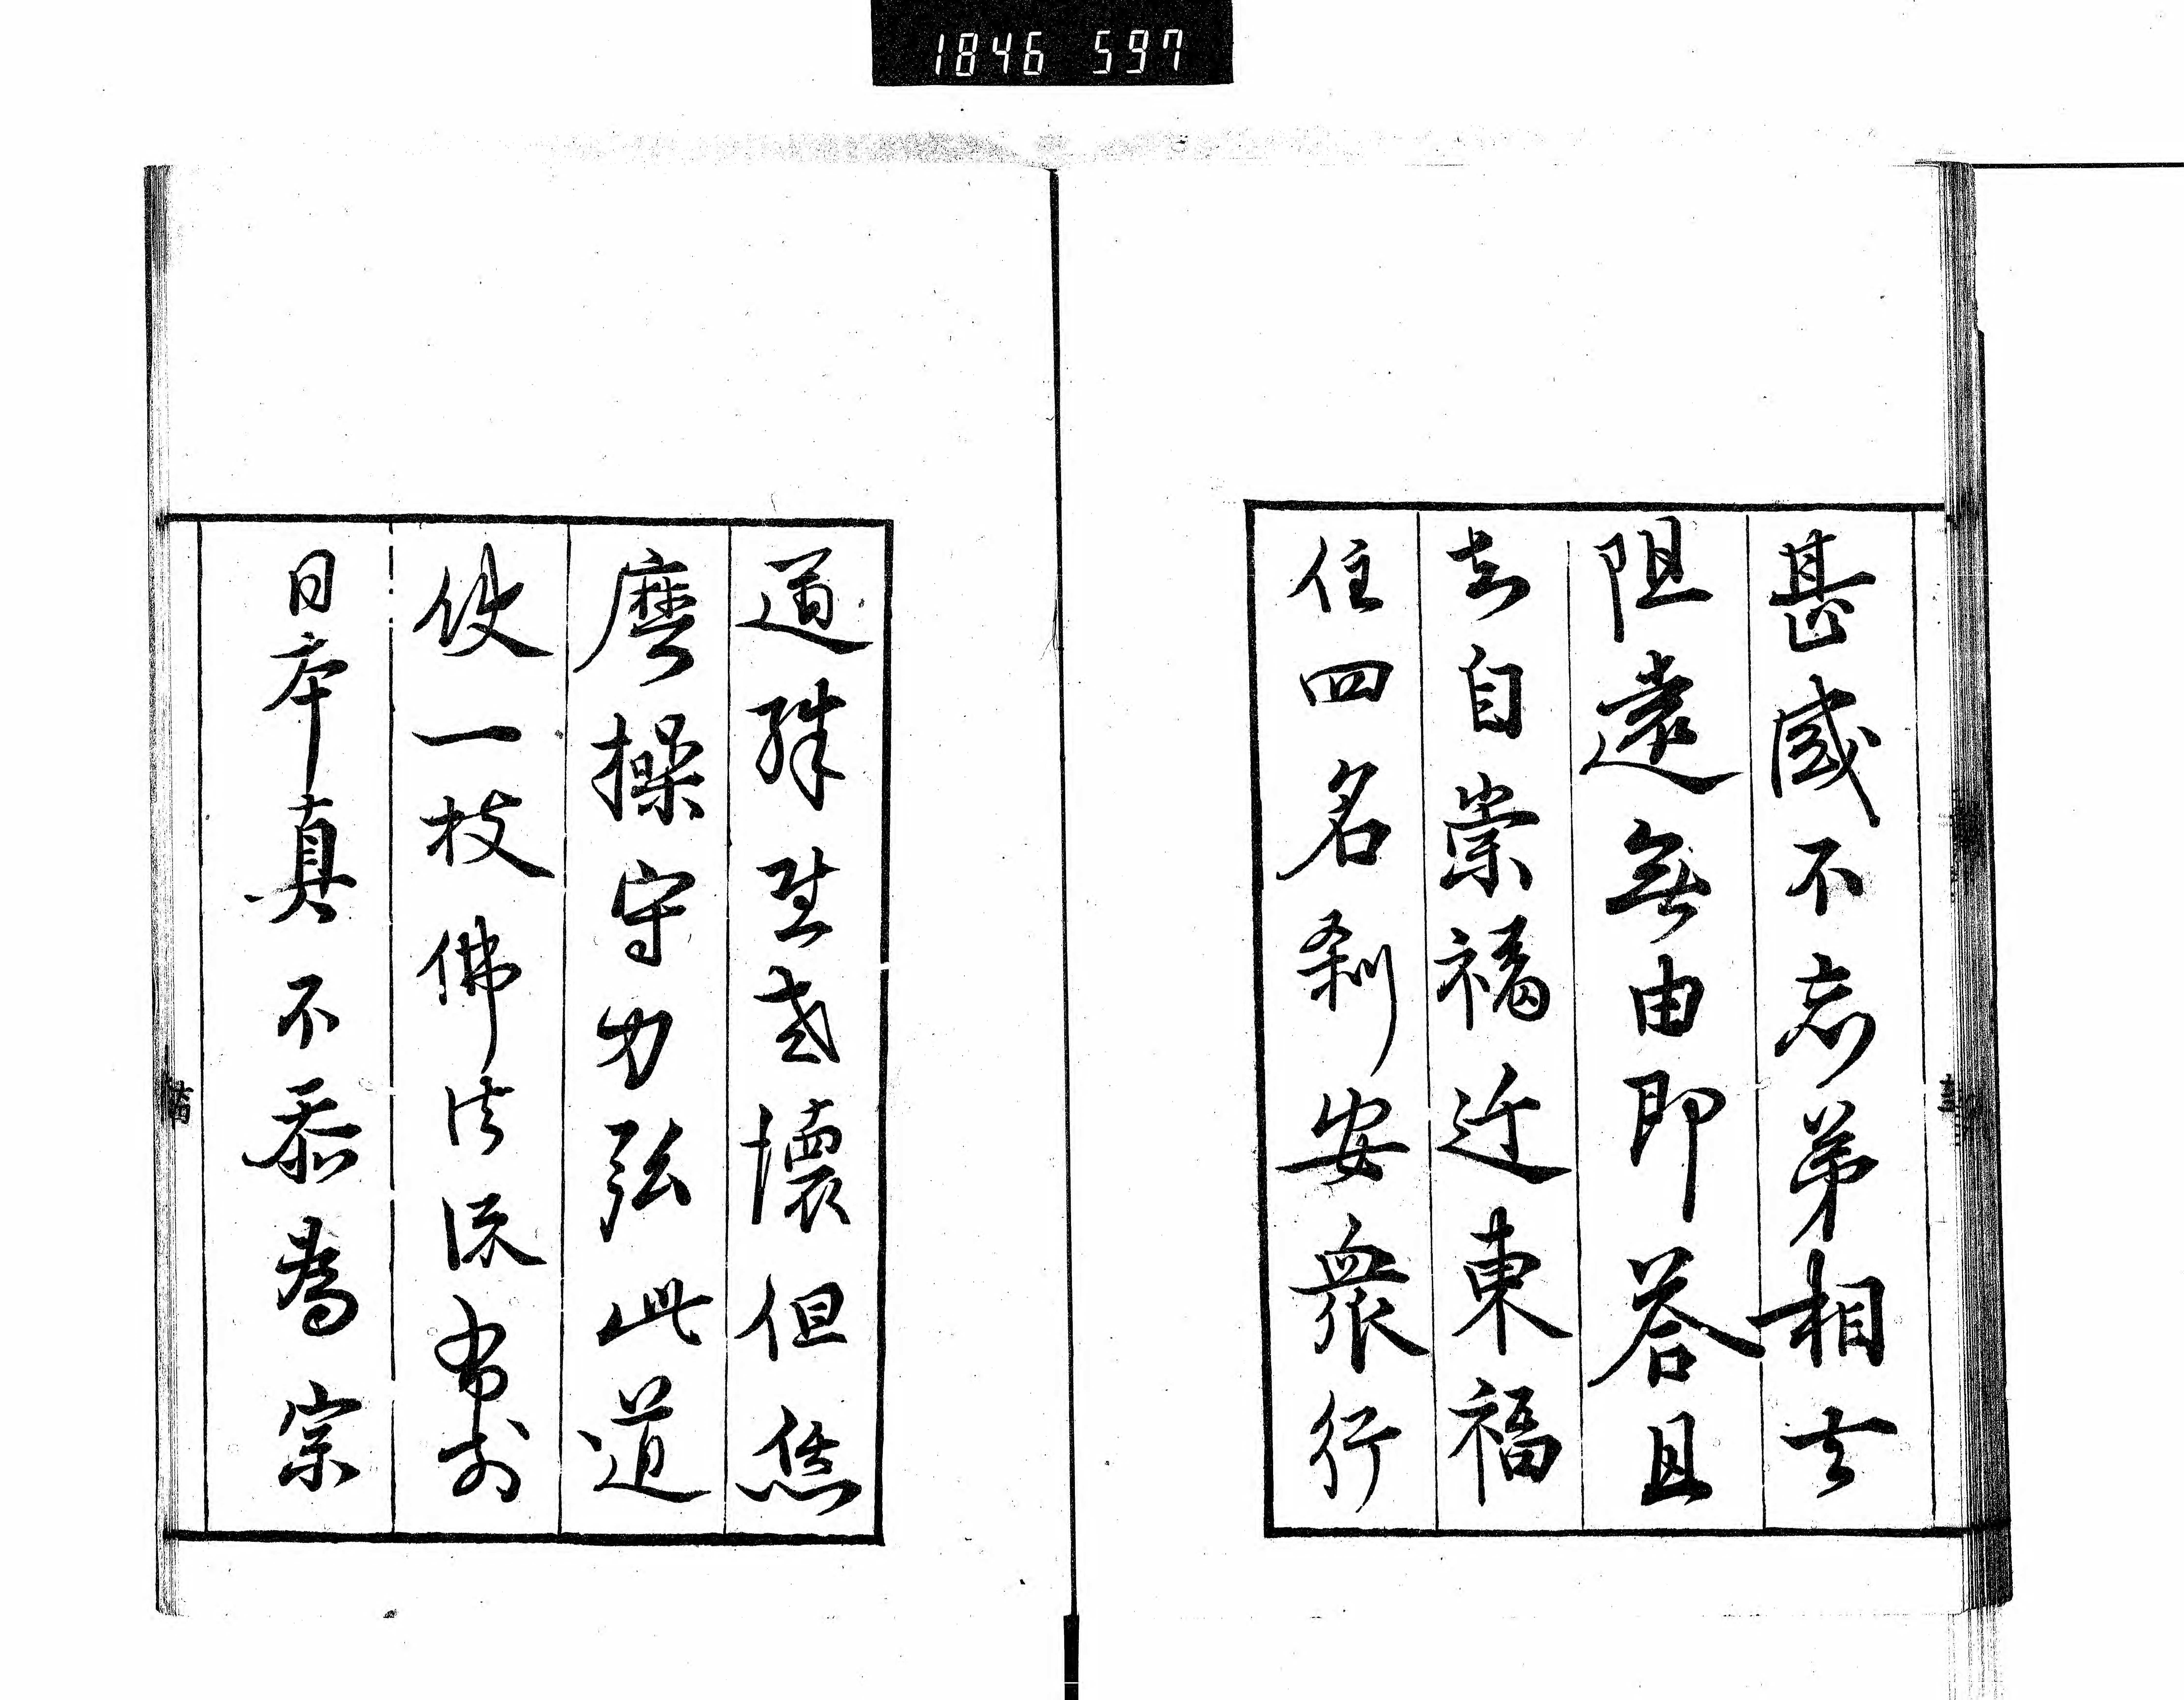 1846 597
甚感不忘弟相去
阻遠無由即答且
知自崇福近東福
住四名刹安衆行
道殊老懷但恁
麼操守力弘此道
使一枝佛法流布於
日本真不忝為宗